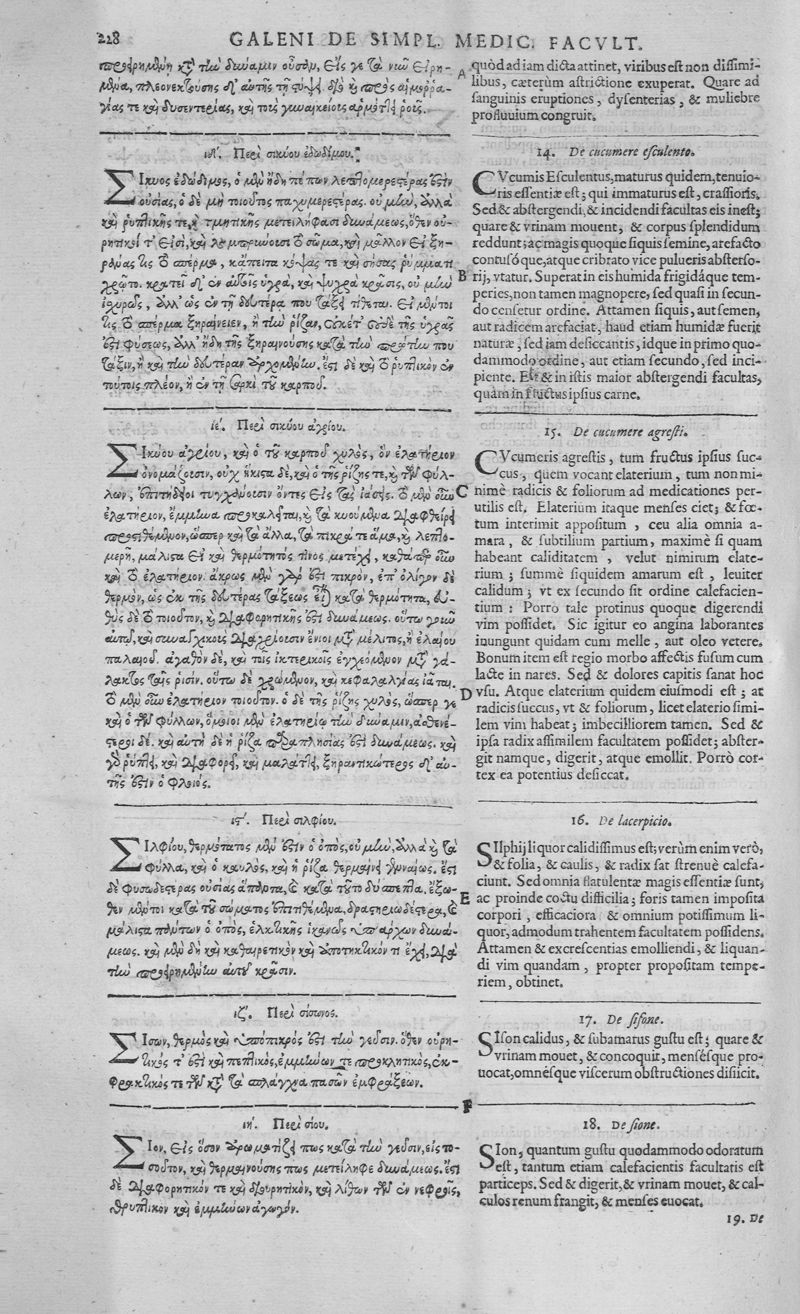 218 GALENI DE SIMPL. MEDIC. FACVLT.
προειρημένῃ κατὰ τὴν δύναμιν οὖσαν, εἰς γε τὰ νῦν εἰρη-
μένα, πλεονεκτούσης δ' αὐτῆς τῇ στύψει. διὸ καὶ πρὸς αἱμορρα-
γίας τε καὶ δυσεντερίας, καὶ τοῖς γυναικείοις ἁρμόττει ῥοῖς.
ιδʹ. Περὶ σικύου ἐδωδίμου.
Σίκυος ἐδώδιμος, ὁ μὲν ἤδη πέπων λεπτομερεστέρας ἐστὶν
οὐσίας, ὁ δὲ μὴ τοιοῦτος παχυμερεστέρας. οὐ μὴν, ἀλλὰ
καὶ ῥυπτικῆς τε, καὶ τμητικῆς μετειλήφασι δυνάμεως, ὅθεν οὐ-
ρητικοί τ' εἰσὶ, καὶ λαμπρύνουσι τὸ σῶμα, καὶ μᾶλλον εἰ ξη-
ράνας τις τὸ σπέρμα, κἄπειτα κόψας τε καὶ σήσας ῥύμματι
χρῷτο. κρατεῖ δ' ἐν αὐτοῖς ὑγρὰ, καὶ ψυχρὰ κρᾶσις, οὐ μὴν
ἰσχυρῶς, ἀλλ' ὡς ἐν τῇ δευτέρᾳ που τάξει τίθεται. εἰ μέντοι
τις τὸ σπέρμα ξηραίνειεν, ἢ τὴν ῥίζαν, οὐκέτ' οὐδὲ τῆς ὑγρᾶς
ἐστὶ φύσεως, ἀλλ' ἤδη τῆς ξηραινούσης κατὰ τὴν πρώτην που
τάξιν, ἢ καὶ τὴν δευτέραν ἀρχομένην. ἔστι δὲ καὶ τὸ ῥυπτικὸν ἐν
τούτοις πλέον, ἢ ἐν τῇ σαρκὶ τοῦ καρποῦ.
ιεʹ. Περὶ σικύου ἀγρίου.
Σικύου ἀγρίου, καὶ ὁ τοῦ καρποῦ χυλὸς, ὃν ἐλατήριον
ὀνομάζουσιν, οὐχ ἥκιστα δὲ, καὶ ὁ τῆς ῥίζης τε, καὶ τῶν φύλ-
λων, ἐπιτήδειοι τυγχάνουσιν ὄντες εἰς τὰς ἰάσεις. τὸ μὲν οὖν
ἐλατήριον, ἔμμηνα προκαλεῖται, καὶ τὰ κυούμενα διαφθείρει
προστιθέμενον, ὥσπερ καὶ τὰ ἄλλα, τὰ πικρά τε ἅμα, καὶ λεπτο-
μερῆ, μάλιστα εἰ καὶ θερμότητός τινος μετέχει, καθάπερ οὖν
καὶ τὸ ἐλατήριον. ἄκρως μὲν γάρ ἐστι πικρὸν, ἐπ' ὀλίγον δὲ
θερμὸν, ὡς ἐκ τῆς δευτέρας τάξεως εἶναι κατὰ θερμότητα, εὐ-
θὺς δὲ τὸ τοιοῦτον, καὶ διαφορητικῆς ἐστι δυνάμεως. οὕτω γοῦν
αὐτῷ, καὶ συναγχικοὺς διαχρίουσιν ἔνιοι μετὰ μέλιτος, ἢ ἐλαίου
παλαιοῦ. ἀγαθὸν δὲ, καὶ τοῖς ἰκτερικοῖς ἐγχεόμενον μετὰ γά-
λακτος ταῖς ῥισίν. οὕτω δὲ χρώμενον, καὶ κεφαλαλγίας ἰᾶται.
τὸ μὲν οὖν ἐλατήριον τοιοῦτον. ὁ δὲ τῆς ῥίζης χυλὸς, ὥσπερ γε
καὶ ὁ τῶν φύλλων, ὅμοιοι μὲν ἐλατηρίῳ τὴν δύναμιν, ἀσθενέ-
στεροι δέ. καὶ αὐτὴ δὲ ἡ ῥίζα παραπλησίας ἐστὶ δυνάμεως. καὶ
γὰρ ῥύπτει, καὶ διαφορεῖ, καὶ μαλάττει, ξηραντικώτερος δ' αὐ-
τῆς ἐστὶν ὁ φλοιός.
ιϛʹ. Περὶ σιλφίου.
Σιλφίου, θερμότατος μέν ἐστιν ὁ ὀπὸς, οὐ μὴν, ἀλλὰ καὶ τὰ
φύλλα, καὶ ὁ καυλὸς, καὶ ἡ ῥίζα θερμαίνει γενναίως. ἔστι
δὲ φυσωδεστέρας οὐσίας ἅπαντα, καὶ κατὰ τοῦτο δύσπεπτα, ἔξω-
θεν μέντοι κατὰ τοῦ σώματος ἐπιτιθέμενα, δραστηριωδέστερα, καὶ
μάλιστα πάντων ὁ ὀπὸς, ἑλκτικῆς ἱκανῶς ὑπάρχων δυνά-
μεως. καὶ μὲν δὴ καὶ καθαιρετικὸν καὶ ἀποτηκτικόν τι ἔχει, διὰ
τὴν προειρημένην αὐτοῦ κρᾶσιν.
ιζʹ. Περὶ σίσωνος.
Σίσων, θερμὸς καὶ ὑπόπικρός ἐστι τὴν γεῦσιν. ὅθεν οὐρη-
τικός τ' ἐστὶ καὶ πεπτικὸς, ἐμμήνων τε προκλητικὸς, ἐκ-
φρακτικός τε τῶν κατὰ τὰ σπλάγχνα πασῶν ἐμφράξεων.
ιηʹ. Περὶ σίου.
Σίον, εἰς ὅσον ἀρωματίζει πως κατὰ τὴν γεῦσιν, εἰς το-
σοῦτον, καὶ θερμαινούσης πως μετείληφε δυνάμεως. ἔστι
δὲ διαφορητικόν τε καὶ διουρητικὸν, καὶ λίθων τῶν ἐν νεφροῖς,
θρυπτικὸν καὶ ἐμμήνων ἀγωγόν.
A
B
C
D
E
F
quòd ad iam dicta attinet, viribus est non dissimi-
libus, cæterùm astrictione exuperat. Quare ad
sanguinis eruptiones, dysenterias, & muliebre
profluuium congruit.
14. De cucumere esculento.
CVcumis Esculentus, maturus quidem, tenuio-
ris essentiæ est; qui immaturus est, crassioris.
Sed & abstergendi, & incidendi facultas eis inest;
quare & vrinam mouent, & corpus splendidum
reddunt: ac magis quoque si quis semine, arefacto
contusóque, atque cribrato vice pulueris abstersо-
rij, vtatur. Superat in eis humida frigidáque tem-
peries, non tamen magnopere, sed quasi in secun-
do censetur ordine. Attamen si quis, aut semen,
aut radicem arefaciat, haud etiam humidæ fuerit
naturæ, sed iam desiccantis, idque in primo quo-
dammodo ordine, aut etiam secundo, sed inci-
piente. Est & in istis maior abstergendi facultas,
quàm in fructus ipsius carne.
15. De cucumere agresti.
CVcumeris agrestis, tum fructus ipsius suc-
cus, quem vocant elaterium, tum non mi-
nimè radicis & foliorum ad medicationes per-
utilis est. Elaterium itaque menses ciet; & fœ-
tum interimit appositum, ceu alia omnia a-
mara, & subtilium partium, maximè si quam
habeant caliditatem, velut nimirum elate-
rium; summè siquidem amarum est, leuiter
calidum; vt ex secundo sit ordine calefacien-
tium: Porrò tale protinus quoque digerendi
vim possidet. Sic igitur eo angina laborantes
inungunt quidam cum melle, aut oleo vetere.
Bonum item est regio morbo affectis fusum cum
lacte in nares. Sed & dolores capitis sanat hoc
vsu. Atque elaterium quidem eiusmodi est; at
radicis succus, vt & foliorum, licet elaterio simi-
lem vim habeat; imbecilliorem tamen. Sed &
ipsa radix assimilem facultatem possidet; abster-
git namque, digerit, atque emollit. Porrò cor-
tex ea potentius desiccat.
16. De lacerpicio.
SIlphij liquor calidissimus est; verùm enim verò,
& folia, & caulis, & radix sat strenuè calefa-
ciunt. Sed omnia flatulentæ magis essentiæ sunt,
ac proinde coctu difficilia; foris tamen imposita
corpori, efficaciora & omnium potissimum li-
quor, admodum trahentem facultatem possidens.
Attamen & excrescentias emolliendi, & liquan-
di vim quandam, propter propositam tempe-
riem, obtinet.
17. De sisone.
SIson calidus, & subamarus gustu est; quare &
vrinam mouet, & concoquit, mensésque pro-
uocat, omnésque viscerum obstructiones disiicit.
18. De sione.
SIon, quantum gustu quodammodo odoratum
est, tantum etiam calefacientis facultatis est
particeps. Sed & digerit, & vrinam mouet, & cal-
culos renum frangit, & menses euocat.
19. De